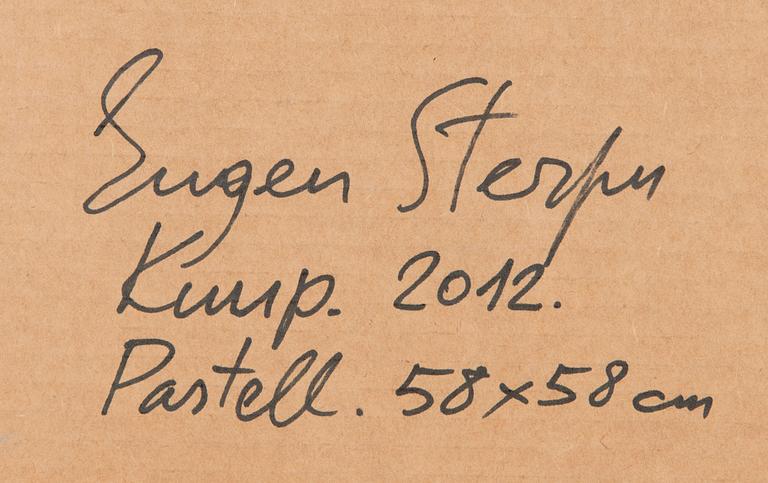 Eugen Sterpu
Kuup. 2012.
Pastell. 58x58 cm